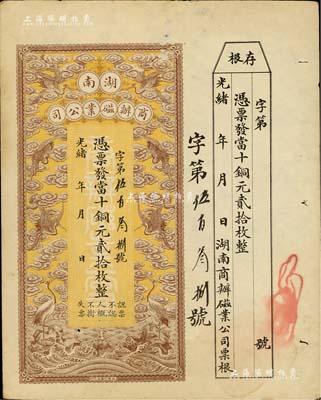 存根
字第 號
憑票發當十銅元貳拾枚整
光緒 年 月 日湖南商辦磁業公司票根
字第伍百 捌號
湖南
商辦磁業公司
字第伍百 捌號
憑票發當十銅元貳拾枚整
光緒 年 月 日
認票不認人概不掛失票